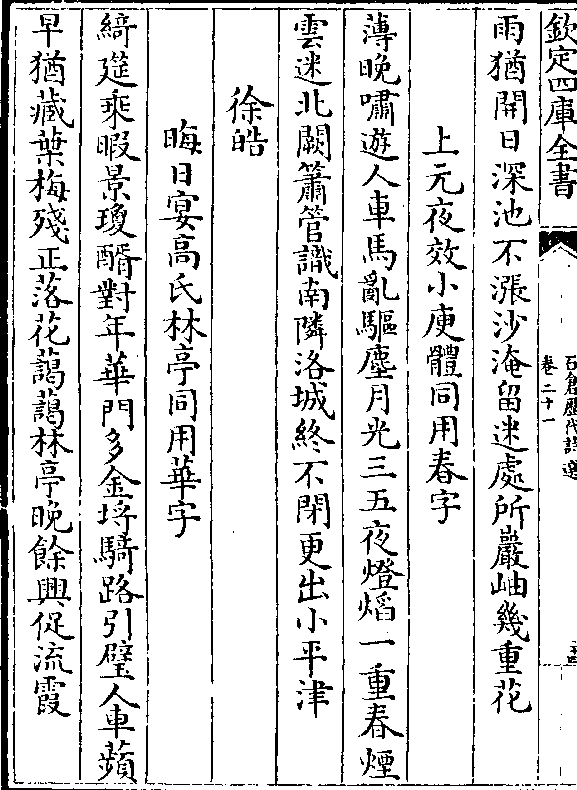 欽定四庫全書
石倉歷代詩選
卷二十一
雨猶開日深池不漲沙淹留迷處所巖岫幾重花
上元夜效小庾體同用春字
薄晚嘯遊人車馬亂驅塵月光三五夜燈熖一重春煙
雲迷北闕簫管識南隣洛城終不閉更出小平津
徐皓
晦日宴高氏林亭同用華字
綺筵乘暇景瓊醑對年華門多金埓騎路引璧人車蘋
早猶藏葉梅殘正落花藹藹林亭晚餘興促流霞